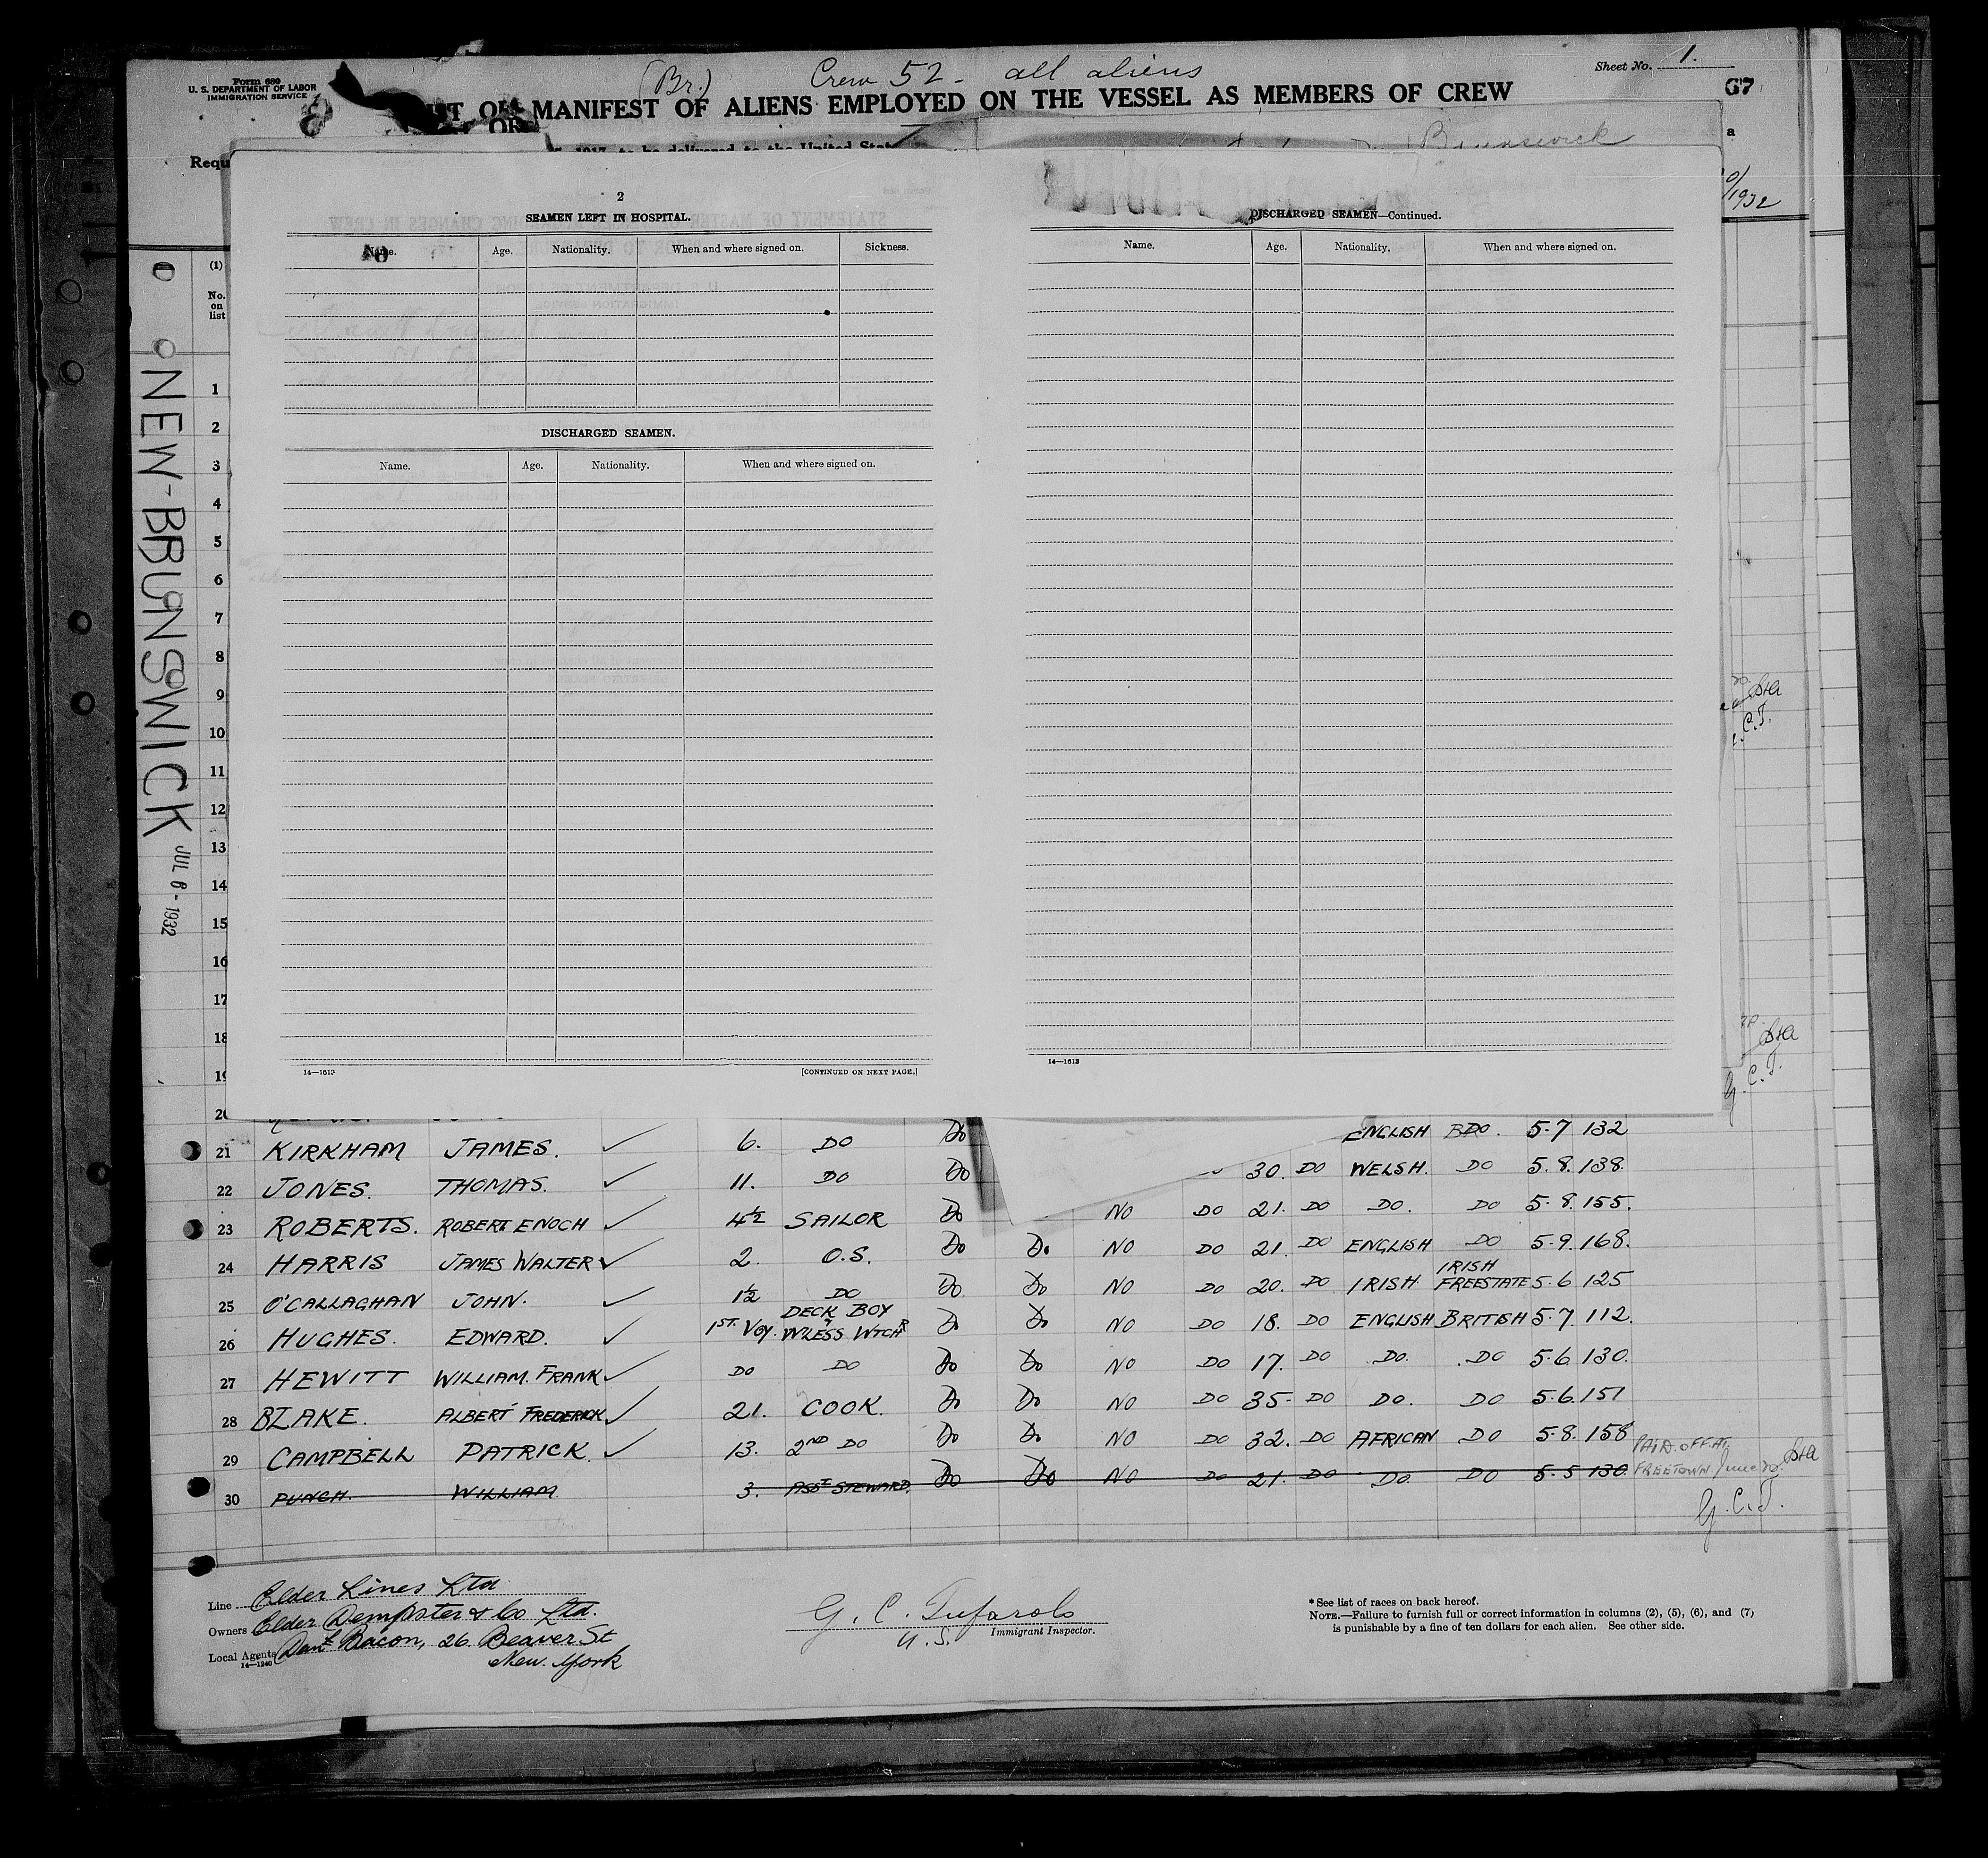 Form 680
U. S. DEPARTMENT OF LABOR
IMMIGRATION SERVICE
(Br.) Crew 52 - all aliens
Sheet No. 1.
MANIFEST OF ALIENS EMPLOYED ON THE VESSEL AS MEMBERS OF CREW
67
Brunswick
1932
NEW-BRUNSWICK JUL 6 - 1932
2
SEAMEN LEFT IN HOSPITAL.
Name. Age. Nationality. When and where signed on. Sickness.
DISCHARGED SEAMEN.
Name. Age. Nationality. When and where signed on.
14—1613 [CONTINUED ON NEXT PAGE.]
DISCHARGED SEAMEN—Continued.
Name. Age. Nationality. When and where signed on.
14—1613
(1)
No.
on
list
1
2
3
4
5
6
7
8
9
10
11
12
13
14
15
16
17
18
21 KIRKHAM JAMES. ✓ 6. DO Do ENGLISH DO. 5.7 132
22 JONES. THOMAS. ✓ 11. DO Do 30. DO WELSH. DO 5.8.138.
23 ROBERTS. ROBERT ENOCH ✓ 4½ SAILOR Do NO DO 21. DO DO. DO 5.8.155.
24 HARRIS JAMES WALTER ✓ 2. O.S. Do Do NO DO 21. DO ENGLISH DO 5.9.168.
25 O'CALLAGHAN JOHN. ✓ 1½ DO Do Do NO DO 20. DO IRISH IRISH FREESTATE 5.6 125
26 HUGHES. EDWARD. ✓ 1ST. VOY. DECK BOY & W'LESS WTCHR Do Do NO DO 18. DO ENGLISH BRITISH 5.7. 112.
27 HEWITT WILLIAM. FRANK ✓ DO DO Do Do NO DO 17. DO DO. DO 5.6 130.
28 BLAKE. ALBERT FREDERICK ✓ 21. COOK. Do Do NO DO 35. DO DO. DO 5.6.151
29 CAMPBELL PATRICK. ✓ 13. 2ND DO Do Do NO DO 32. DO AFRICAN DO 5.8.158
30 PUNCH. WILLIAM 3. ASST STEWARD. Do Do NO DO 21. DO DO. DO 5.5 130. PAID.OFF.AT. FREETOWN June 20.
G.C.T.
Line Elder Lines Ltd
Owners Elder Dempster & Co Ltd.
Local Agents Danl Bacon, 26 Beaver St
14—1240 New. York
G. C. Tufarolo
U. S. Immigrant Inspector.
* See list of races on back hereof.
NOTE.—Failure to furnish full or correct information in columns (2), (5), (6), and (7)
is punishable by a fine of ten dollars for each alien. See other side.